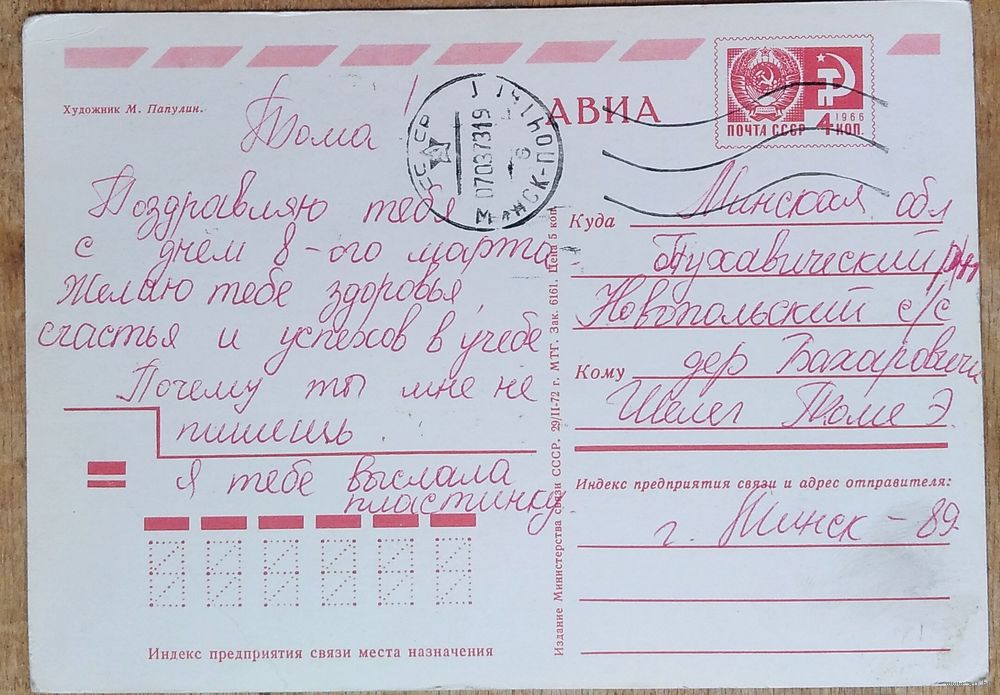 Художник М. Папулин.
АВИА
ПОЧТА СССР
1966
4 КОП.
07037319
Тома!
Поздравляю тебя
с днём 8-ого марта
Желаю тебе здоровья,
счастья и успехов в учёбе
Почему ты мне не
пишешь
Я тебе выслала
пластинку
Индекс предприятия связи места назначения
Издание Министерства связи СССР. 29/II-72 г. МТГ. Зак. 6161. Цена 5 коп.
Куда
Минская обл
Пухавический р/н
Новопольский с/с
Кому
дер Бахаровичи
Шелег Томе Э.
Индекс предприятия связи и адрес отправителя:
г. Минск - 89